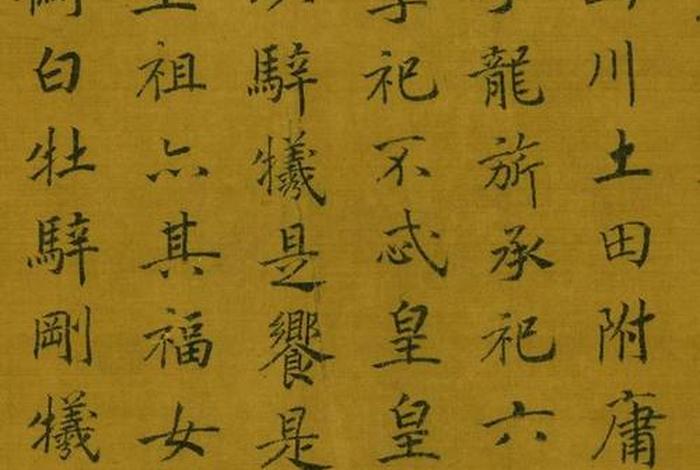 川土田附庸
龍旂承祀六
祀不忒皇皇
騂犧是饗是
祖亦其福女
白牡騂剛犧